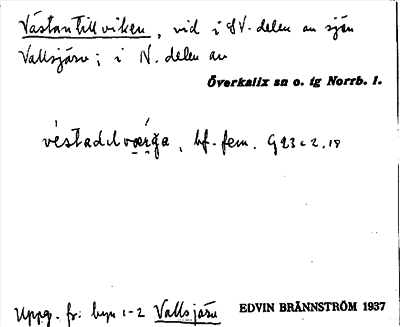 Västantillviken, vid i SV. delen av sjön
Vallsjärv; i N. delen av
Överkalix sn o. tg Norrb. l.
bf. fem. G 23 c 2, 18
Uppg. fr. byn 1-2 Vallsjärv EDVIN BRÄNNSTRÖM 1937